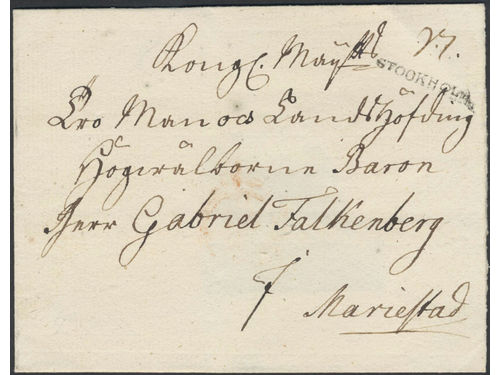 Kongl. Maÿtts
STOCKHOLM
Tro Man ocs Landshöfding
Högwälborne Baron
Herr Gabriel Falkenberg
Mariestad